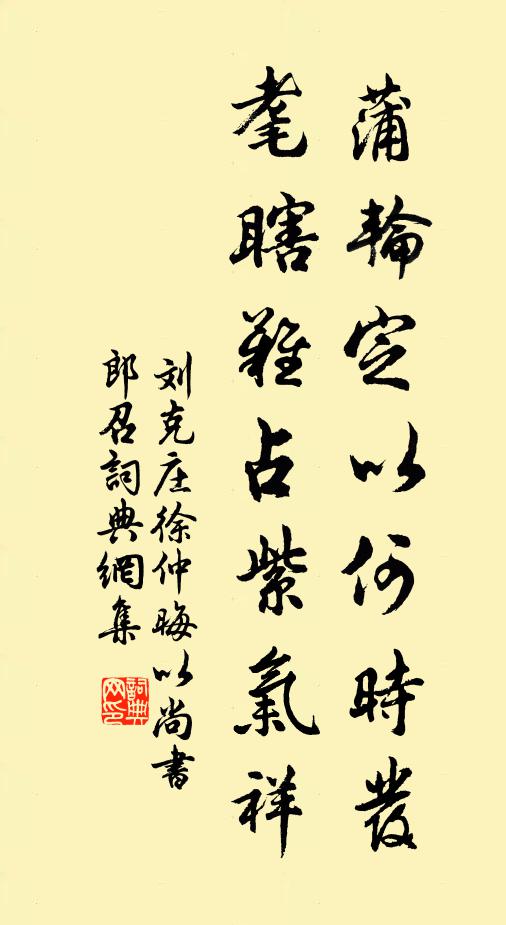 蒲輪定以何時發
耄瞎難占紫氣祥
刘克庄徐仲晦以尚書
郎召詞典網集
詞典网印